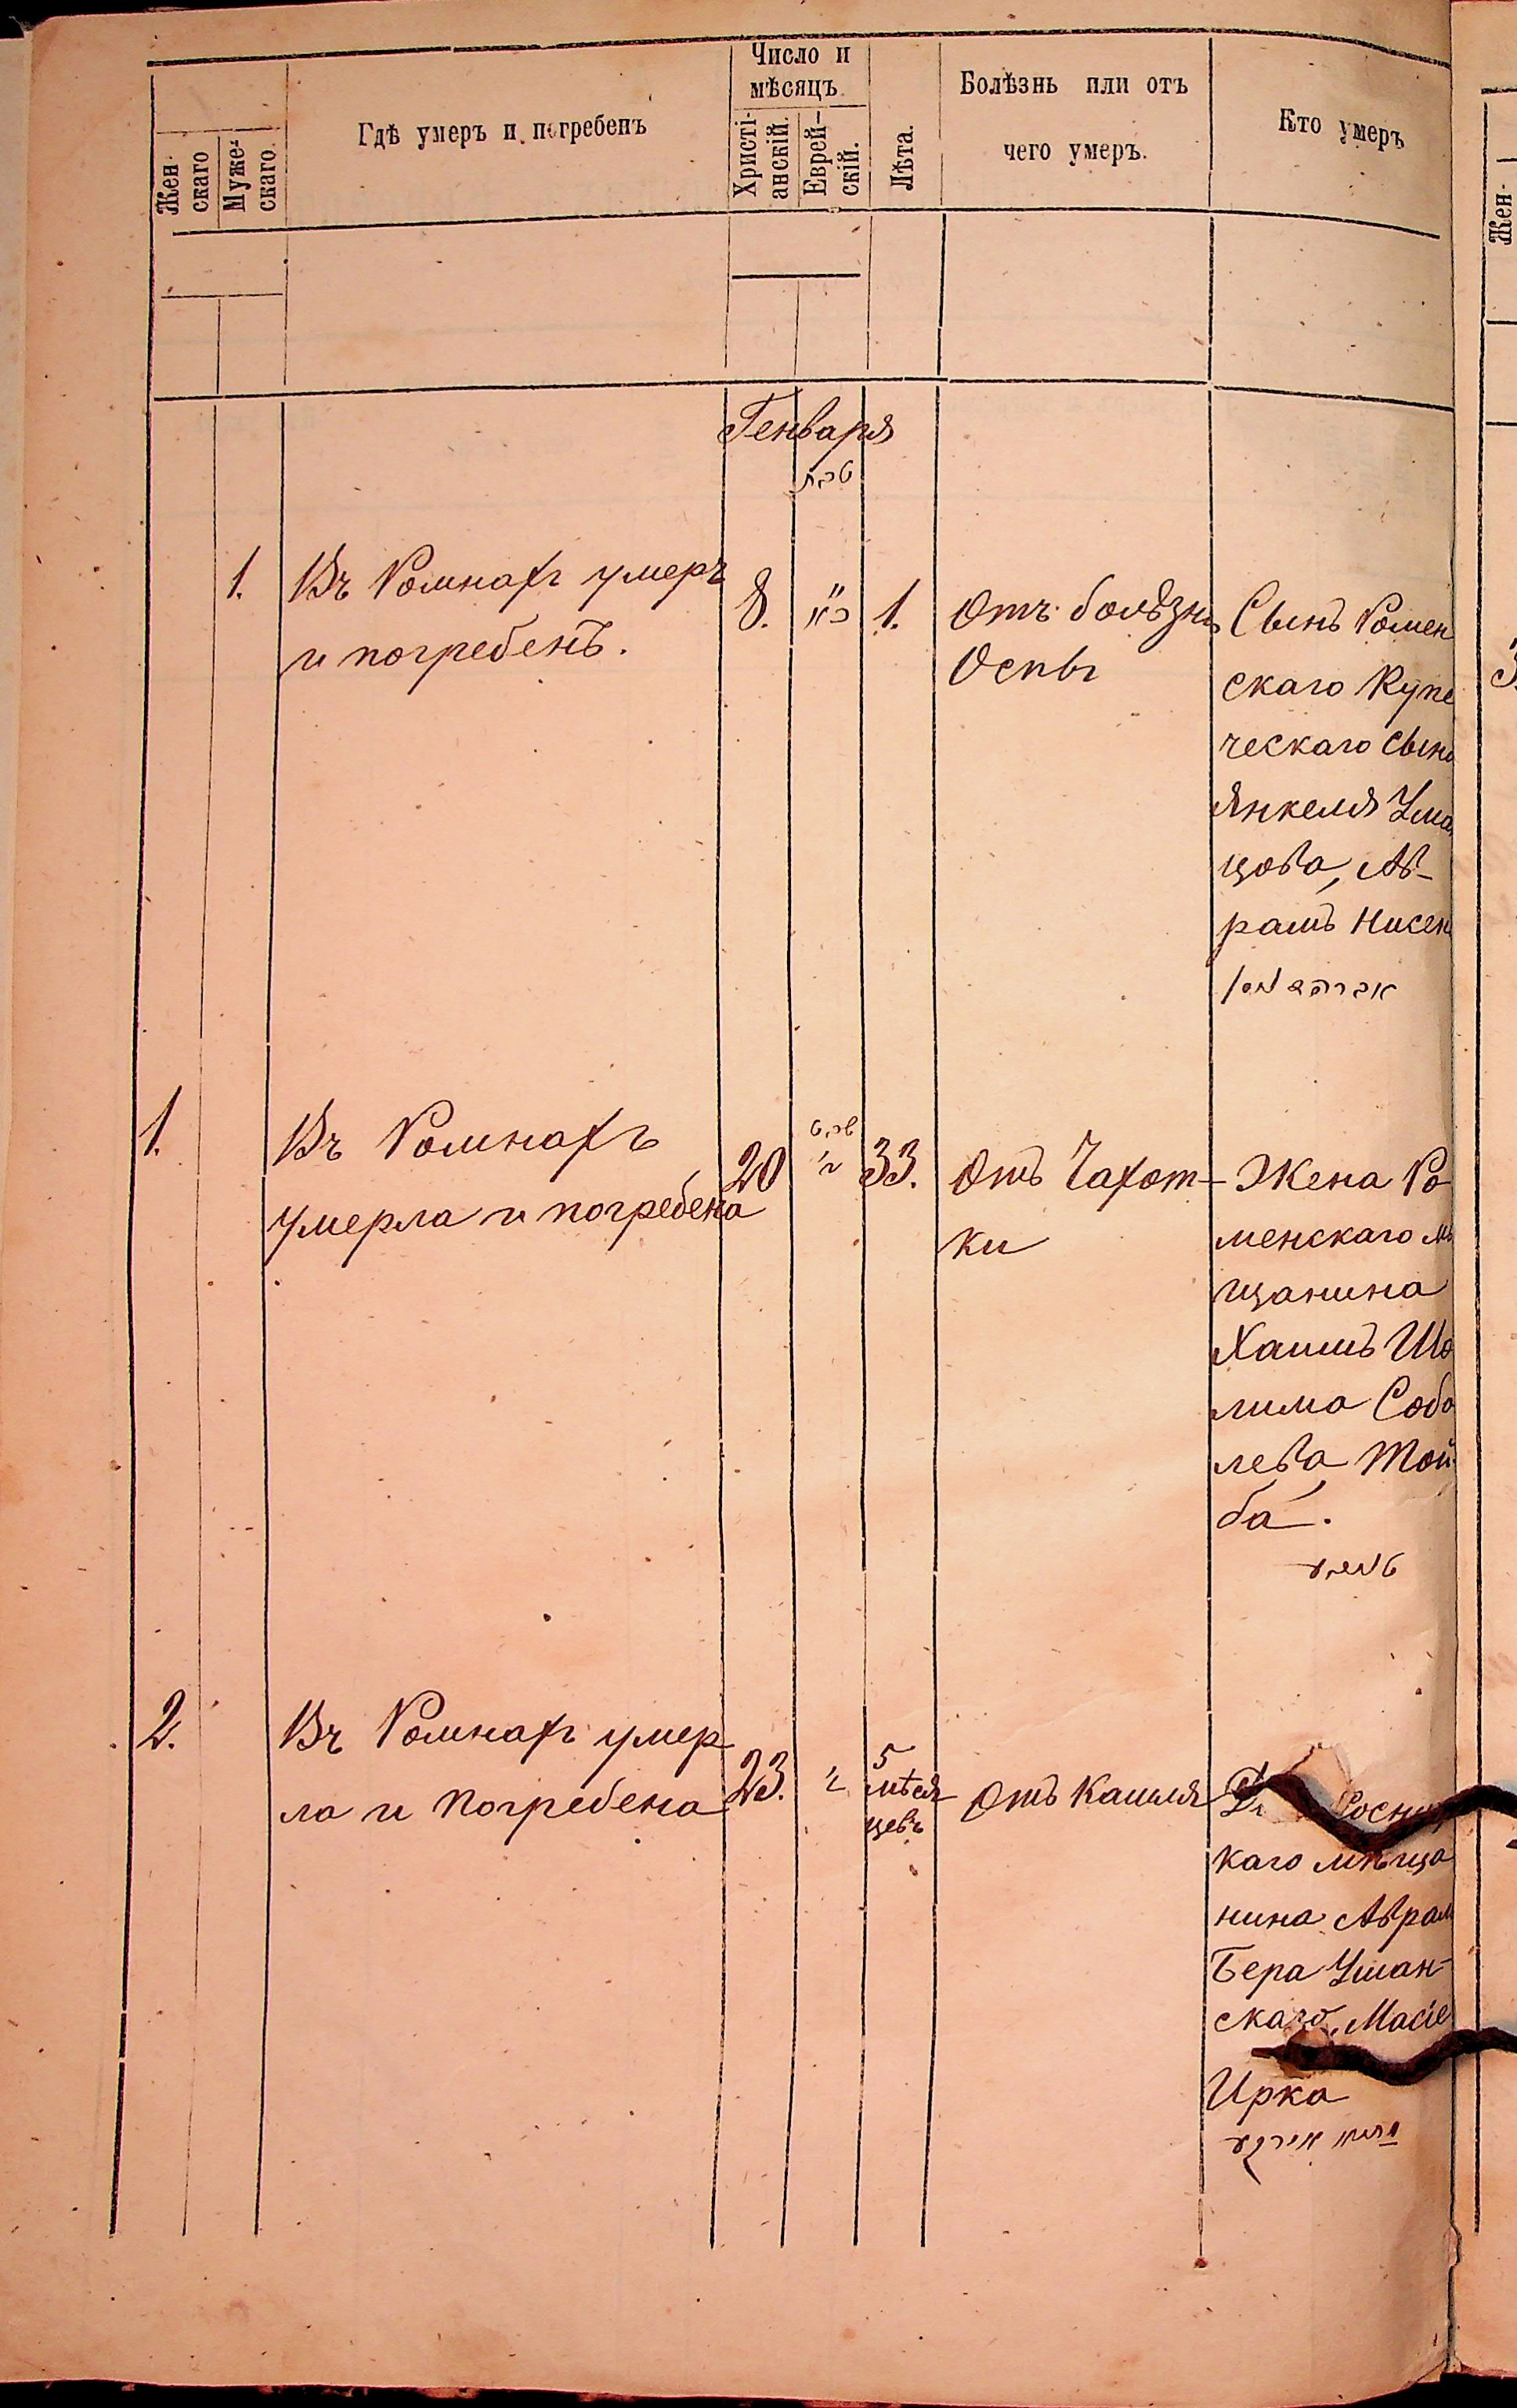 Жен-
скаго
Муже-
скаго.
Гдѣ умеръ и погребенъ
Число и
мѣсяцъ.
Христі-
анскій.
Еврей-
скій.
Лѣта.
Болѣзнь или отъ
чего умеръ.
Кто умеръ
Жен-
Генваря
טבת
1.
Въ Ромнахъ умеръ
и погребенъ.
8.
1.
Отъ болѣзни
Оспы
Сынъ Ромен
скаго Купе
ческаго сына
Янкеля Ума
цова, Ав-
рамъ Нисен
אברהם ניסן
1.
Въ Ромнахъ
умерла и погребена
20
שבט
ד'
33.
Отъ Чахот-
ки
Жена Ро
менскаго мѣ
щанина
Хаимъ Шо
лима Собо
лева Той
ба.
טויבע
2.
Въ Ромнахъ умер
ла и погребена
23.
ז'
5
мѣся
цевъ
Отъ Кашля
каго мѣща
нина Аврам
Бера Уман-
скаго, Масіе
Ирка